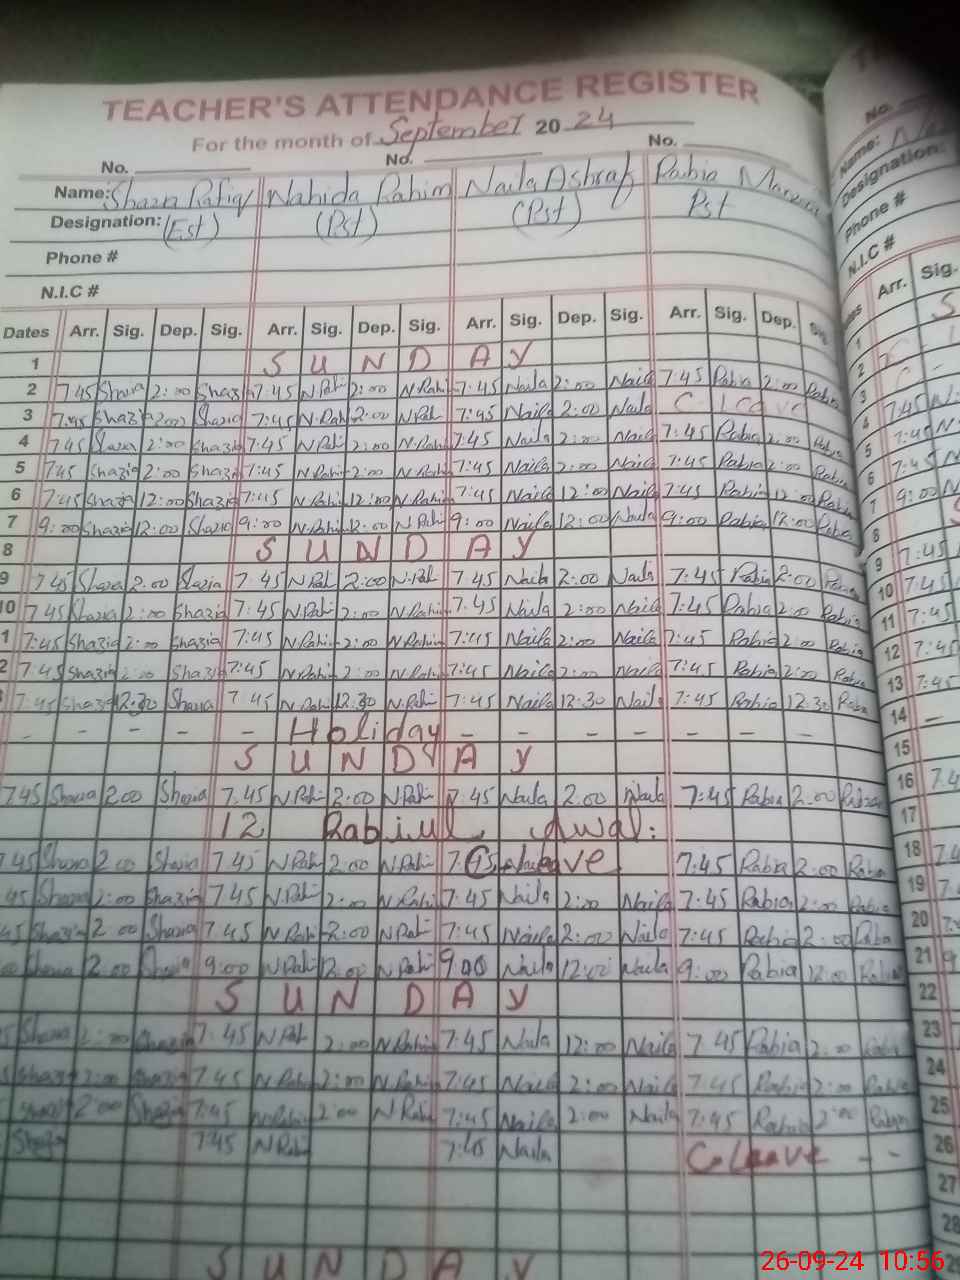 TEACHER'S ATTENDANCE REGISTER
For the month of September 2024
No. No. No. No.
Name: Shazia Rafiq Nahida Rahim Naila Ashraf Rabia
Designation: (Est) (Pst) (Pst) Pst
Phone #
N.I.C #
Dates Arr. Sig. Dep. Sig. Arr. Sig. Dep. Sig. Arr. Sig. Dep. Sig. Arr. Sig. Dep. Sig
1 SUNDAY
2 7:45 Shazia 2:00 Shazia 7:45 N.Rahi 2:00 N.Rahi 7:45 Naila 2:00 Naila 7:45 Rabia 2:00 Rabia
3 7:45 Shazia 2:00 Shazia 7:45 N.Rahi 2:00 N.Rahi 7:45 Naila 2:00 Naila C-Leave
4 7:45 Shazia 2:00 Shazia 7:45 N.Rahi 2:00 N.Rahi 7:45 Naila 2:00 Naila 7:45 Rabia 2:00 Rabia
5 7:45 Shazia 2:00 Shazia 7:45 N.Rahi 2:00 N.Rahi 7:45 Naila 2:00 Naila 7:45 Rabia 2:00 Rabia
6 7:45 Shazia 12:00 Shazia 7:45 N.Rahi 12:00 N.Rahi 7:45 Naila 12:00 Naila 7:45 Rabia 12:00 Rabia
7 9:00 Shazia 12:00 Shazia 9:00 N.Rahi 12:00 N.Rahi 9:00 Naila 12:00 Naila 9:00 Rabia 12:00 Rabia
8 SUNDAY
9 7:45 Shazia 2:00 Shazia 7:45 N.Rahi 2:00 N.Rahi 7:45 Naila 2:00 Naila 7:45 Rabia 2:00 Rabia
10 7:45 Shazia 2:00 Shazia 7:45 N.Rahi 2:00 N.Rahi 7:45 Naila 2:00 Naila 7:45 Rabia 2:00 Rabia
1 7:45 Shazia 2:00 Shazia 7:45 N.Rahi 2:00 N.Rahi 7:45 Naila 2:00 Naila 7:45 Rabia 2:00 Rabia
2 7:45 Shazia 2:00 Shazia 7:45 N.Rahi 2:00 N.Rahi 7:45 Naila 2:00 Naila 7:45 Rabia 2:00 Rabia
7:45 Shazia 12:30 Shazia 7:45 N.Rahi 12:30 N.Rahi 7:45 Naila 12:30 Naila 7:45 Rabia 12:30 Rabia
- - - - - Holiday - - - - - -
SUNDAY
7:45 Shazia 2:00 Shazia 7:45 N.Rahi 2:00 N.Rahi 7:45 Naila 2:00 Naila 7:45 Rabia 2:00 Rabia
12 Rabiul Awal:
7:45 Shazia 2:00 Shazia 7:45 N.Rahi 2:00 N.Rahi Leave 7:45 Rabia 2:00 Rabia
45 Shazia 2:00 Shazia 7:45 N.Rahi 2:00 N.Rahi 7:45 Naila 2:00 Naila 7:45 Rabia 2:00 Rabia
45 Shazia 2:00 Shazia 7:45 N.Rahi 2:00 N.Rahi 7:45 Naila 2:00 Naila 7:45 Rabia 2:00 Rabia
Shazia 2:00 Shazia 9:00 N.Rahi 12:00 N.Rahi 9:00 Naila 12:00 Naila 9:00 Rabia 12:00 Rabia
SUNDAY
Shazia 2:00 Shazia 7:45 N.Rahi 2:00 N.Rahi 7:45 Naila 12:00 Naila 7:45 Rabia 2:00 Rabia
Shazia 2:00 Shazia 7:45 N.Rahi 2:00 N.Rahi 7:45 Naila 2:00 Naila 7:45 Rabia 2:00 Rabia
Shazia 2:00 Shazia 7:45 N.Rahi 2:00 N.Rahi 7:45 Naila 2:00 Naila 7:45 Rabia 2:00 Rabia
Shazia 7:45 N.Rahi 7:45 Naila C-Leave - -
SUNDAY
No.
Name:
Designation:
Phone #
N.I.C #
Arr. Sig.
1
2
3
4 7:45
5 7:45
6 7:45
7 9:00
8
9 7:45
10 7:45
11 7:45
12 7:45
13 7:45
14 -
15
16
17
18
19
20
21
22
23
24
25
26
27
28
26-09-24 10:56